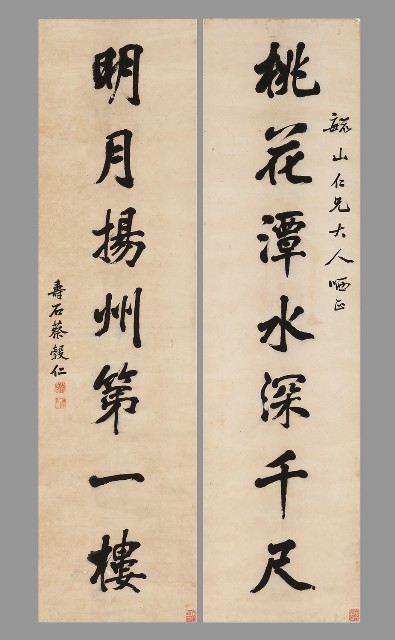 毓山仁兄大人哂正
桃花潭水深千尺
明月揚州第一樓
壽石蔡穀仁